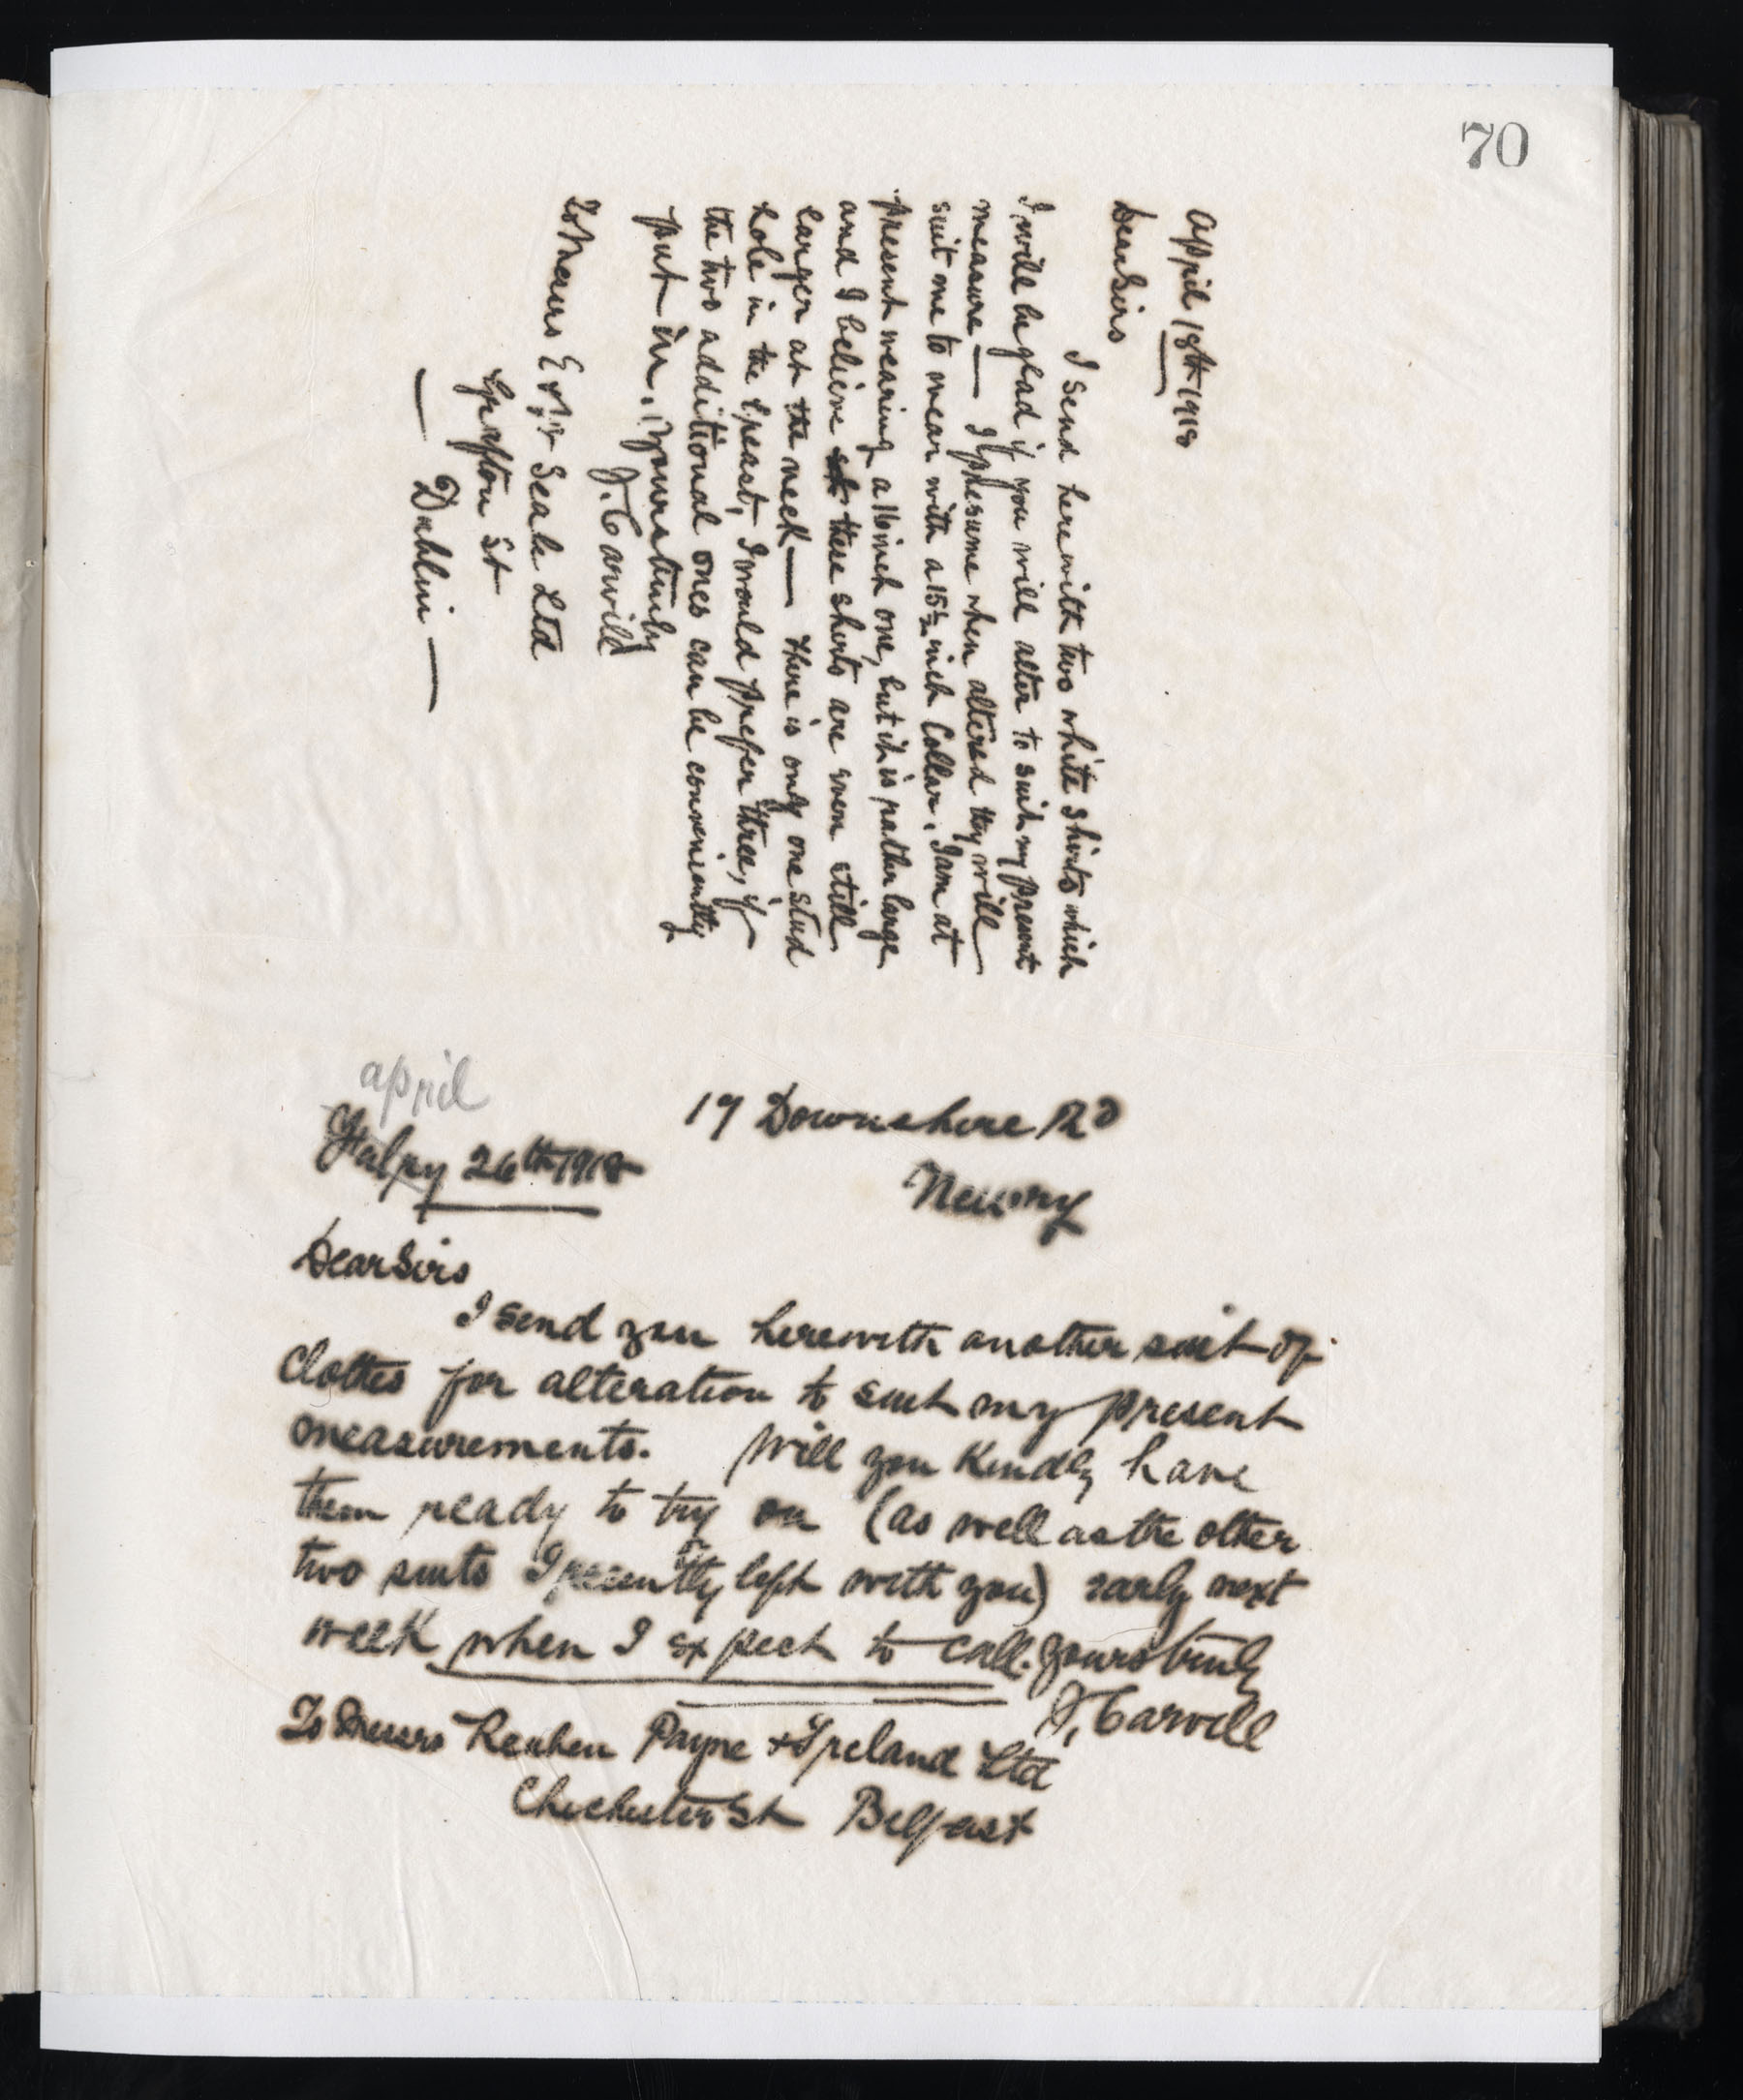 70
April 18th 1918
Dear Sirs
I send herewith two white shirts which
I will be glad if you will alter to suit my present
measure — I presume when altered they will
suit me to wear with a 15½ inch Collar, I am at
present wearing a 16 inch one, but it is rather large
and I believe these shirts are even still
larger at the neck — there is only one stud
hole in the breast, I would prefer three, if
the two additional ones can be conveniently
put in. Yours truly
F. Carvill
To Messrs E & W Seale Ltd
Grafton St
— Dublin —
april
19 Downshire Rd
26th 1918
Newry
Dear Sirs
I send you herewith another suit of
Clothes for alteration to suit my present
measurements. Will you Kindly have
them ready to try on (as well as the other
two suits I recently left with you) early next
week when I expect to call. Yours truly
F. Carvill
To Messrs Reuben Payne & Ireland Ltd
Chichester St Belfast